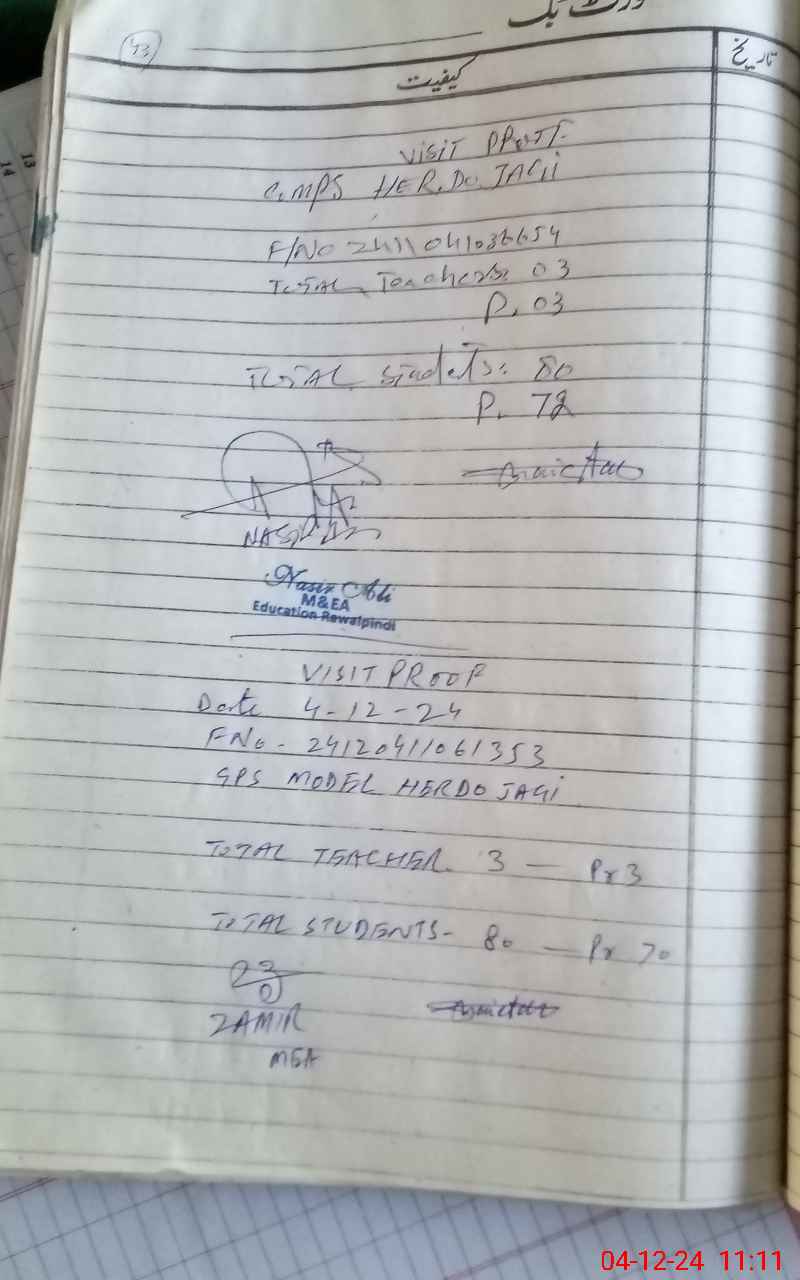 وزٹ بک
93
کیفیت
تاریخ
VISIT PROOF
G.MPS HER.DO JAGI
F/NO 24110411036654
TOTAL Teachers: 03
P. 03
TOTAL Studets: 80
P. 72
NASIR ALI
Nasir Ali
M&EA
Education Rewalpindi
VISIT PROOF
Date 4-12-24
FNo - 24120411061353
GPS MODEL HERDO JAGI
TOTAL TEACHER. 3 — Pr 3
TOTAL STUDENTS- 80 — Pr 70
ZAMIR
MEA
13
14
04-12-24 11:11